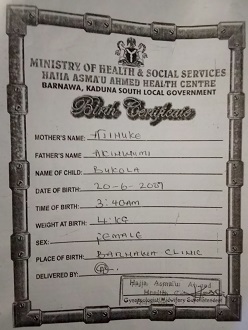 MINISTRY OF HEALTH & SOCIAL SERVICES
HAJIA ASMA'U AHMED HEALTH CENTRE
BARNAWA, KADUNA SOUTH LOCAL GOVERNMENT
Birth Certificate
MOTHER'S NAME:
FATHER'S NAME AKINWUMI
NAME OF CHILD: BUKOLA
DATE OF BIRTH: 20-6-2001
TIME OF BIRTH: 3:40AM
WEIGHT AT BIRTH: 4KG
SEX: FEMALE
PLACE OF BIRTH: BARNAWA CLINIC
DELIVERED BY:
Hajia Asma'u Ahmed
Health